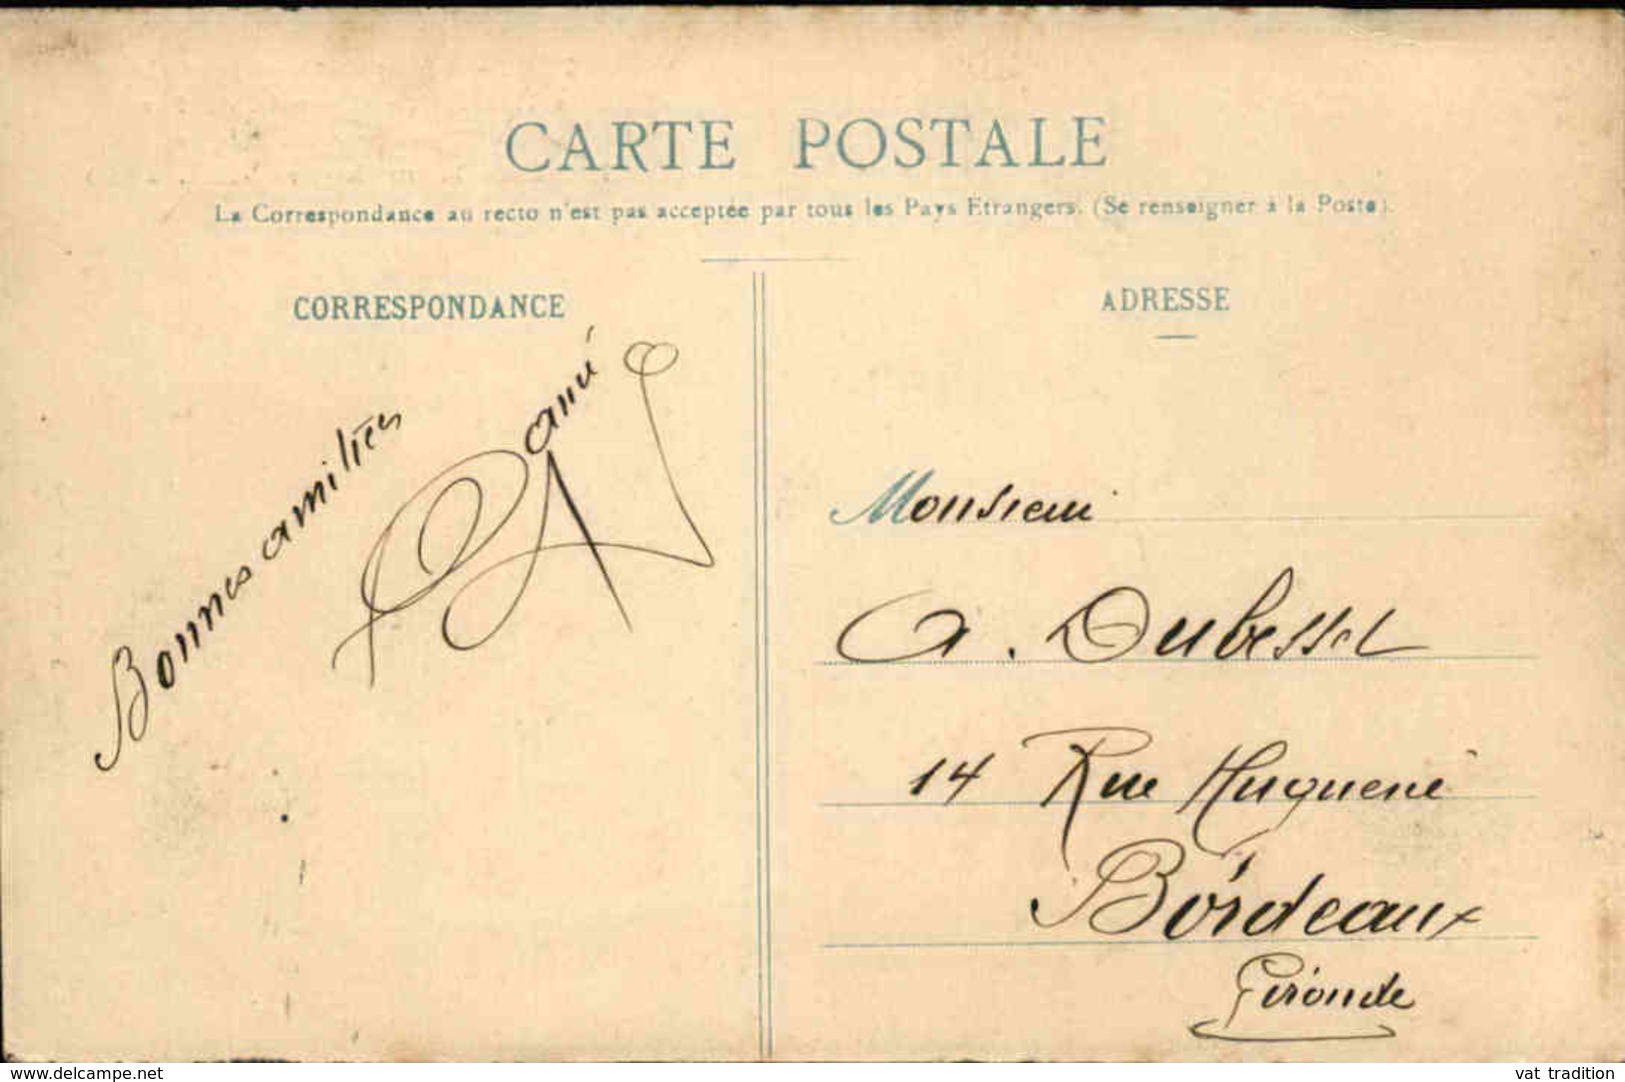 CARTE POSTALE
La Correspondance au recto n'est pas acceptée par tous les Pays Etrangers. (Se renseigner à la Poste).
CORRESPONDANCE
Bonnes amitiés
ADRESSE
Monsieur
A. Dubesset
14 Rue Huguerie
Bordeaux
Gironde
www.delcampe.net
vat_tradition